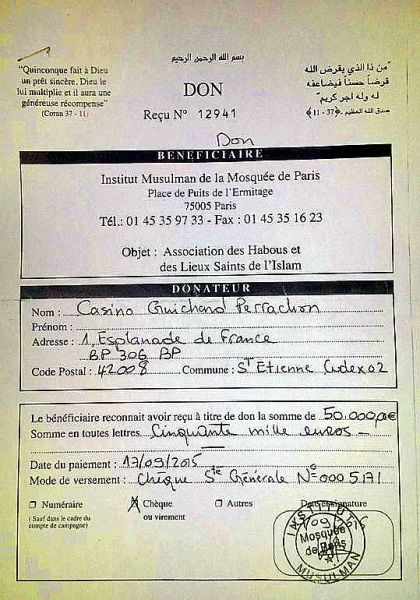 بسم الله الرحمن الرحيم
"Quinconque fait à Dieu
un prêt sincère, Dieu le
lui multiplie et il aura une
généreuse récompense"
(Coran 37 - 11)
DON
Reçu N° 12941
"من ذا الذي يقرض الله
قرضا حسنا فيضاعفه
له وله اجر كريم"
صدق الله العظيم
﴿11 - 37﴾
Don
BENEFICIAIRE
Institut Musulman de la Mosquée de Paris
Place de Puits de l'Ermitage
75005 Paris
Tél.: 01 45 35 97 33 - Fax : 01 45 35 16 23
Objet : Association des Habous et
des Lieux Saints de l'Islam
DONATEUR
Nom : Casino Guichard Perrachon
Prénom :
Adresse : 1, Esplanade de France
BP 306 BP
Code Postal : 42008 Commune : St Etienne Cedex 02
Le bénéficiaire reconnait avoir reçu à titre de don la somme de 50.000,00€
Somme en toutes lettres Cinquante mille euros
Date du paiement : 17/09/2015
Mode de versement : Chèque Sté Générale N° 000 5171
Numéraire
( Sauf dans le cadre du
compte de campagne)
Chèque
ou virement
Autres
Date et signature
INSTITUT
Mosquée
de Paris
MUSULMAN